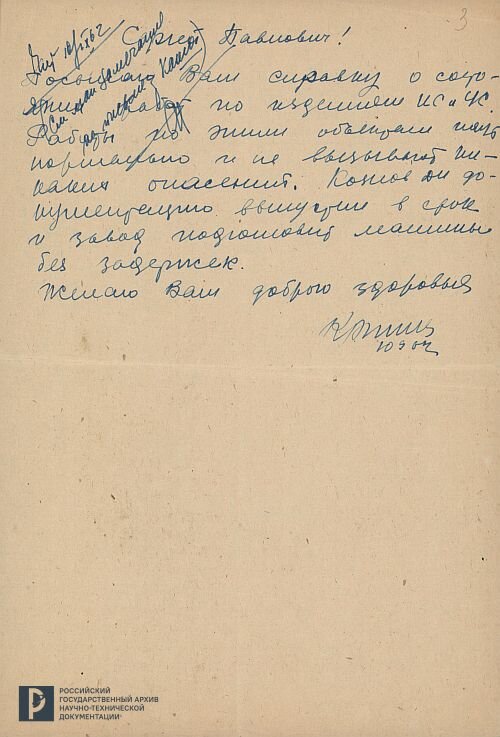 3
10/IX 62
Сергей Павлович!
Посылаю Вам справку о состо-
янии работ по изделиям
Работы по этим объектам идут
нормально и не вызывают ни-
каких опасений. Козлов Дм до-
кументацию выпустит в срок
и завод подготовит машины
без задержек.
Желаю Вам доброго здоровья
10 9 62
РОССИЙСКИЙ
ГОСУДАРСТВЕННЫЙ АРХИВ
НАУЧНО-ТЕХНИЧЕСКОЙ
ДОКУМЕНТАЦИИ